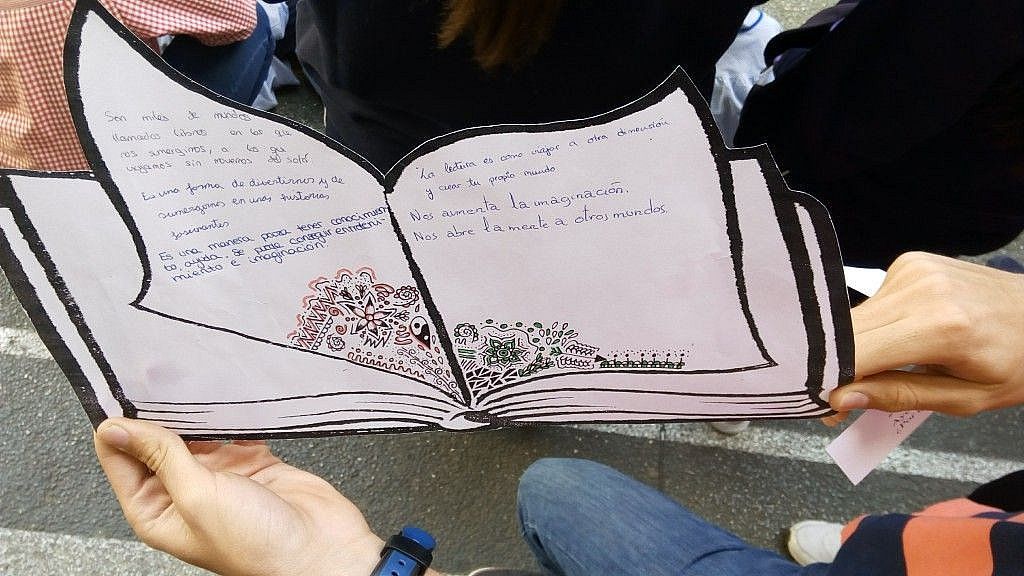 Son miles de mundos
llamados libros en los que
nos sumergimos, a los que
viajamos sin movernos del sofá.
Es una forma de divertirnos y de
sumergirnos en unas historias
fascinantes
Es una manera para tener conocimien-
to, ayuda. Se puede conseguir entendi-
miento e imaginación
La lectura es como viajar a otra dimensión
y crear tu propio mundo
Nos aumenta la imaginación.
Nos abre la mente a otros mundos.